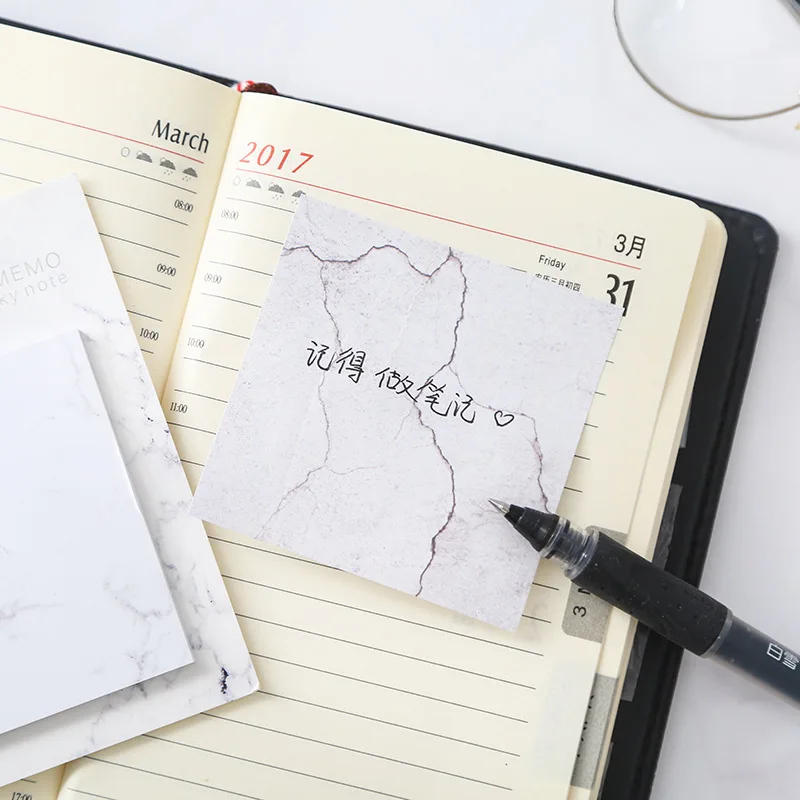 March
08:00
09:00
10:00
2017
08:00
09:00
10:00
11:00
3月
Friday
农历三月初四
31
MEMO
ky note
记得 做笔记 ♡
3 M
17:00